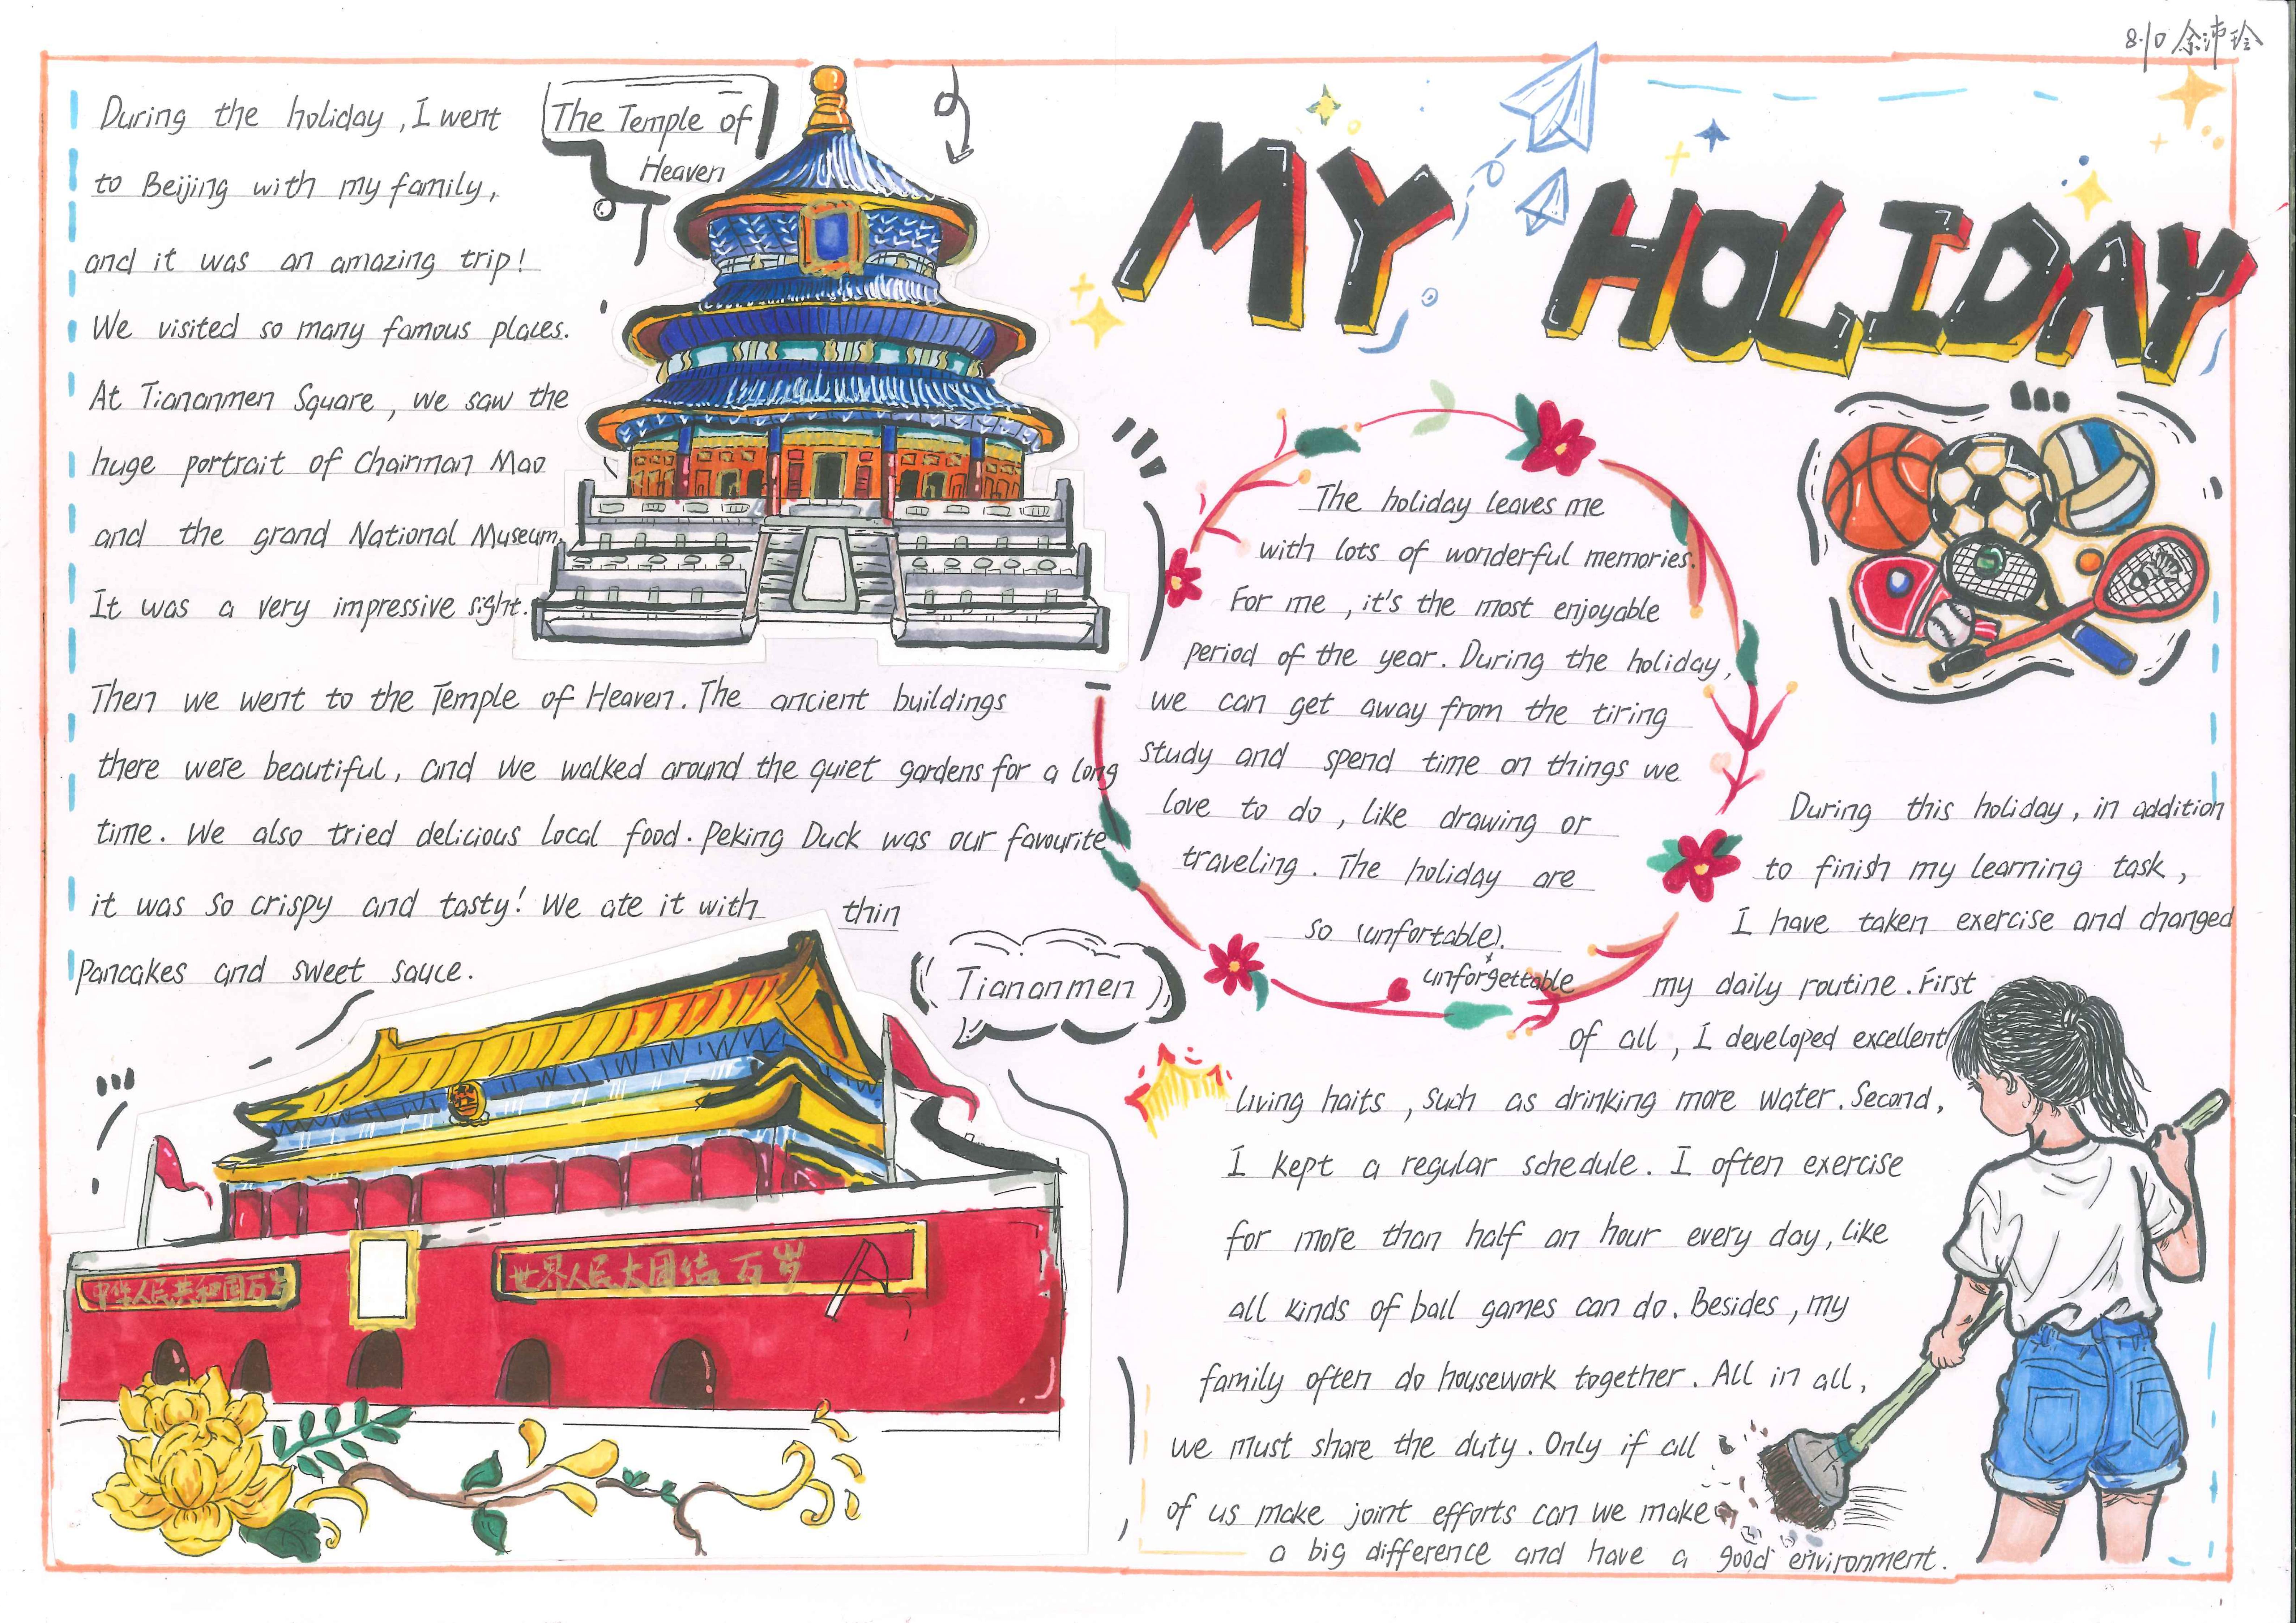 8.10 余沛玲
MY HOLIDAY
During the holiday, I went
to Beijing with my family,
and it was an amazing trip!
We visited so many famous places.
At Tiananmen Square, we saw the
huge portrait of Chairman Mao
and the grand National Museum.
It was a very impressive sight.
The Temple of
Heaven
Then we went to the Temple of Heaven. The ancient buildings
there were beautiful, and we walked around the quiet gardens for a long
time. We also tried delicious local food. Peking Duck was our favourite
it was so crispy and tasty! We ate it with thin
Pancakes and sweet sauce.
Tiananmen
中华人民共和国万岁
世界人民大团结万岁
The holiday leaves me
with lots of wonderful memories.
For me, it's the most enjoyable
period of the year. During the holiday,
we can get away from the tiring
study and spend time on things we
love to do, like drawing or
traveling. The holiday are
so (unfortable).
unforgettable
During this holiday, in addition
to finish my learning task,
I have taken exercise and changed
my daily routine. First
of all, I developed excellent
living haits, such as drinking more water. Second,
I kept a regular schedule. I often exercise
for more than half an hour every day, like
all kinds of ball games can do. Besides, my
family often do housework together. All in all,
we must share the duty. Only if all
of us make joint efforts can we make
a big difference and have a good environment.